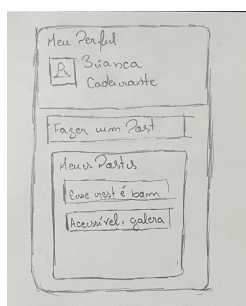 Meu Perfil
Bianca
Cadeirante
Fazer um Post
Meus Postes
Esse rest é bom
Acessível, galera